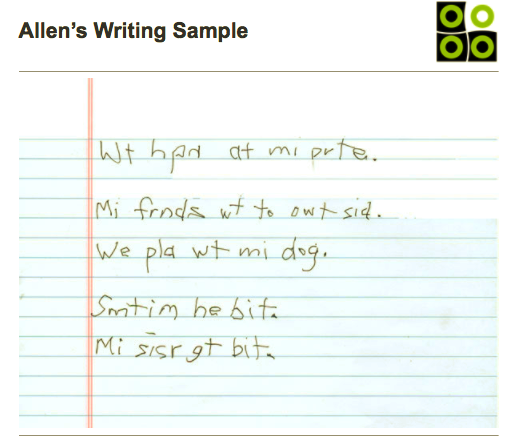 Allen's Writing Sample
Wt hpn at mi prte.
Mi frnds wt to owt sid.
We pla wt mi dog.
Smtim he bit.
Mi sisr gt bit.